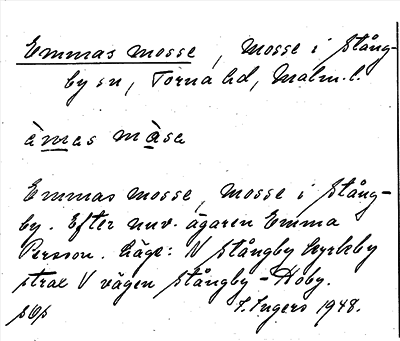 Emmas mosse, Mosse i Stång-
by sn, Torna hd, Malm. l.
àmas màsa
Emmas mosse, Mosse i Stång-
by. Efter nuv. ägaren Emma
Persson. Läge: N Stångby kyrkby
strax V vägen Stångby - Hoby.
I. Ingers 1948.